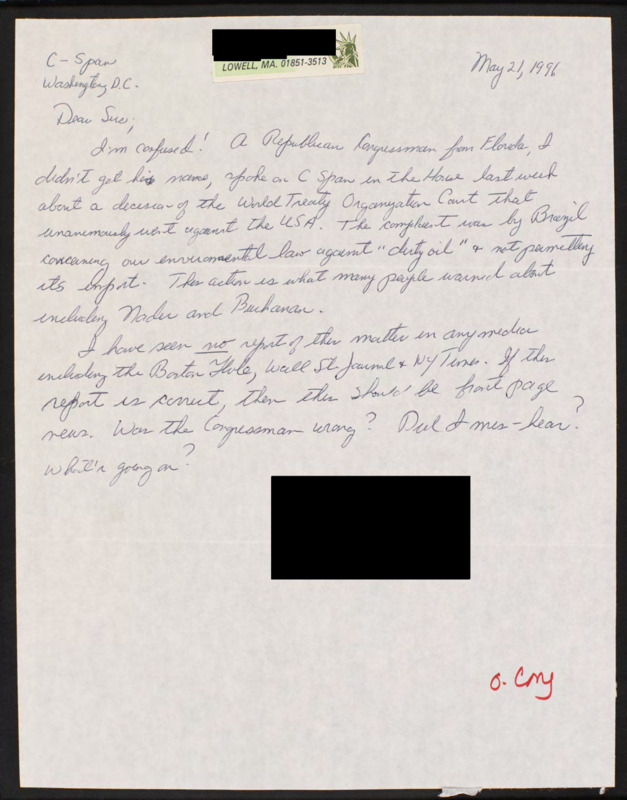 LOWELL, MA. 01851-3513
C-Span
Washington, D.C.
May 21, 1996
Dear Sir,
I'm confused! A Republican Congressman from Florida, I
didn't get his name, spoke on C Span in the House last week
about a decision of the World Treaty Organization Court that
unanimously went against the USA. The complaint was by Brazil
concerning our enviromental law against "dirty oil" & not permitting
its import. This action is what many people warned about
including Nader and Buchanan.
I have seen no report of this matter in any media
including the Boston Globe, Wall St Journal & NY Times. If this
report is correct, then this should be front page
news. Was the Congressman wrong? Did I mis-hear?
What's going on?
O. Cmg